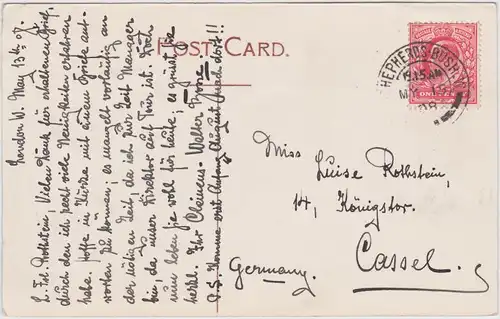 POST CARD.
London W. May 13th 07.
L. Frl. Rothstein, Vielen Dank für erhaltenen Brief,
durch den ich recht viele Neuigkeiten erfahren
habe. Hoffe in Kürze mit einem Briefe ant-
worten zu können; es mangelt vorläufig an
der nötigen Zeit, da ich zur Zeit Manager
bin, da unser Direktor auf Tour ist.
nun leben Sie wohl für heute; es grüsst Sie
herzl. Ihr Clemens-Walter
P.S. Komme erst Anfang August nach dort!!!
SHEPHERDS BUSH
9.15 AM
MY
ONE
Miss Luise Rothstein,
14, Königstor.
Cassel.
Germany.